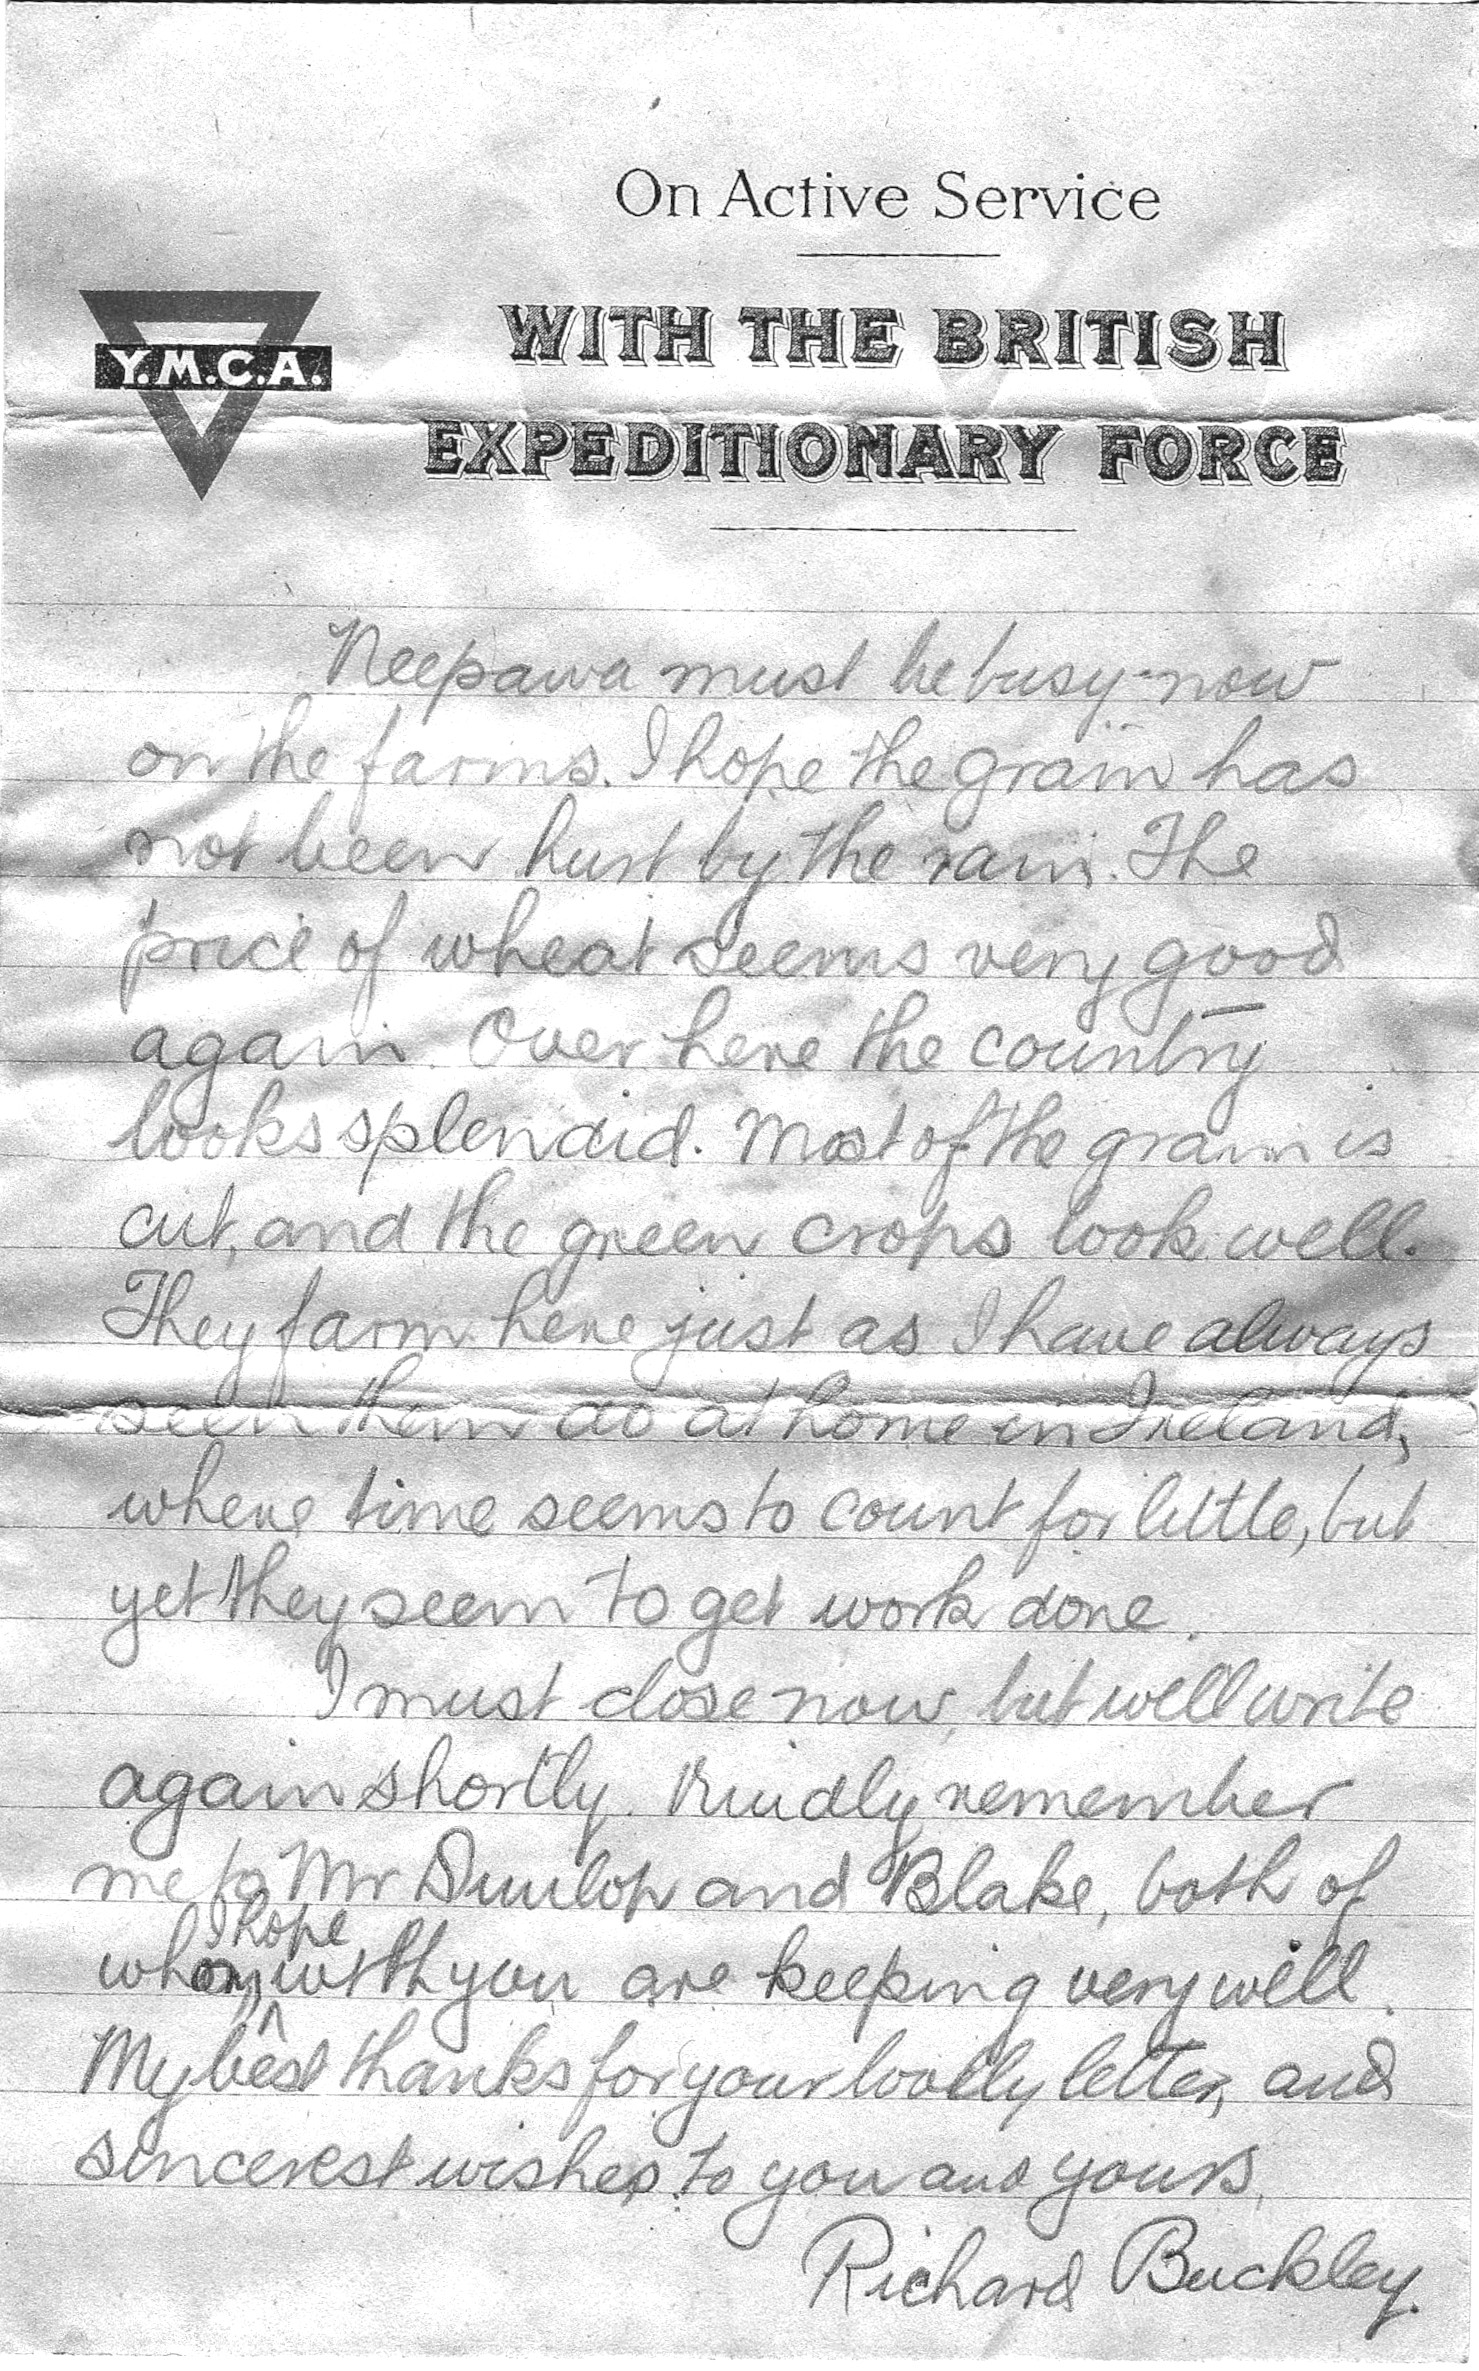 On Active Service
WITH THE BRITISH
Y.M.C.A.
EXPEDITIONARY FORCE
Neepawa must be busy now
on the farms. I hope the grain has
not been hurt by the rain. The
price of wheat seems very good
again. Over here the country
looks splendid. Most of the grain is
cut, and the green crops look well.
They farm here just as I have always
seen them do at home in Ireland,
where time seems to count for little, but
yet they seem to get work done.
I must close now, but will write
again shortly. Kindly remember
me to Mr Dunlop and Blake, both of
I hope
whom, with you are keeping very well.
My best thanks for your letter, and
sincerest wishes to you and yours,
Richard Buckley.